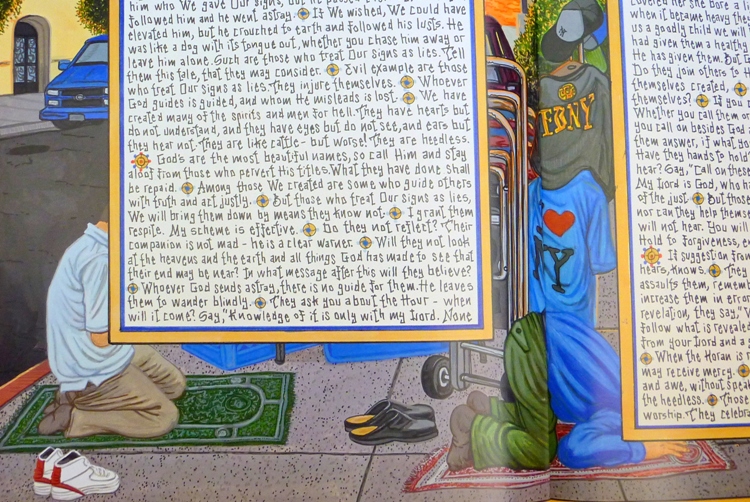 him who We gave Our signs, but he
followed him and he went astray. If We wished, We could have
elevated him, but he crouched to earth and followed his lusts. He
was like a dog with its tongue out, whether you chase him away or
leave him alone. Such are those who treat Our signs as lies. Tell
them this tale, that they may consider. Evil example are those
who treat Our signs as lies. They injure themselves. Whoever
God guides is guided, and whom He misleads is lost. We have
created many of the spirits and men for hell. They have hearts but
do not understand, and they have eyes but do not see, and ears but
they hear not. They are like cattle - but worse! They are heedless.
God's are the most beautiful names, so call Him and stay
aloof from those who pervert His titles. What they have done shall
be repaid. Among those We created are some who guide others
with truth and act justly. But those who treat Our signs as lies,
We will bring them down by means they know not. I grant them
respite. My scheme is effective. Do they not reflect? Their
companion is not mad - he is a clear warner. Will they not look
at the heavens and the earth and all things God has made to see that
their end may be near? In what message after this will they believe?
Whoever God sends astray, there is no guide for them. He leaves
them to wander blindly. They ask you about the Hour - when
will it come? Say, "Knowledge of it is only with my Lord. None
FDNY
I ♥
NY
when it became heavy
us a goodly child we will
had given them a healthy
He has given them. But
Do they join others to
themselves created,
themselves? If you
Whether you call them or
you call on besides God
them answer, if what you
Have they hands to hold
hear? Say, "Call on these
My Lord is God, who
of the just. But those
nor can they help themselves
will not hear. You will
Hold to forgiveness,
If suggestion from
hears, knows. They
assaults them, remember
increase them in error
revelation, they say,
follow what is revealed
from your Lord and a
When the Koran is
may receive mercy.
and awe, without
the heedless. Those
worship. They celebrate